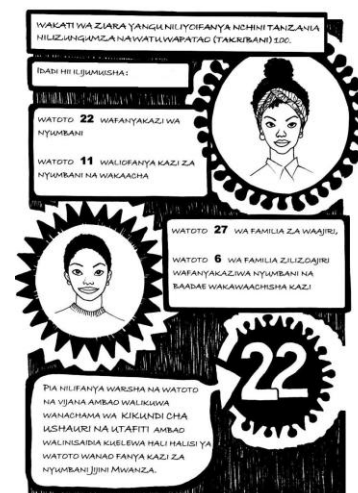 WAKATI WA ZIARA YANGU NILIYOIFANYA NCHINI TANZANIA
NILIZUNGUMZA NA WATU WAPATAO (TAKRIBANI) 100.
IDADI HII ILIJUMUISHA:
WATOTO 22 WAFANYAKAZI WA
NYUMBANI
WATOTO 11 WALIOFANYA KAZI ZA
NYUMBANI NA WAKAACHA
WATOTO 27 WA FAMILIA ZA WAAJIRI,
WATOTO 6 WA FAMILIA ZILIZOAJIRI
WAFANYAKAZIWA NYUMBANI NA
BAADAE WAKAWAACHISHA KAZI
22
PIA NILIFANYA WARSHA NA WATOTO
NA VIJANA AMBAO WALIKUWA
WANACHAMA WA KIKUNDI CHA
USHAURI NA UTAFITI AMBAO
WALINISAIDIA KUELEWA HALI HALISI YA
WATOTO WANAO FANYA KAZI ZA
NYUMBANI JIJINI MWANZA.